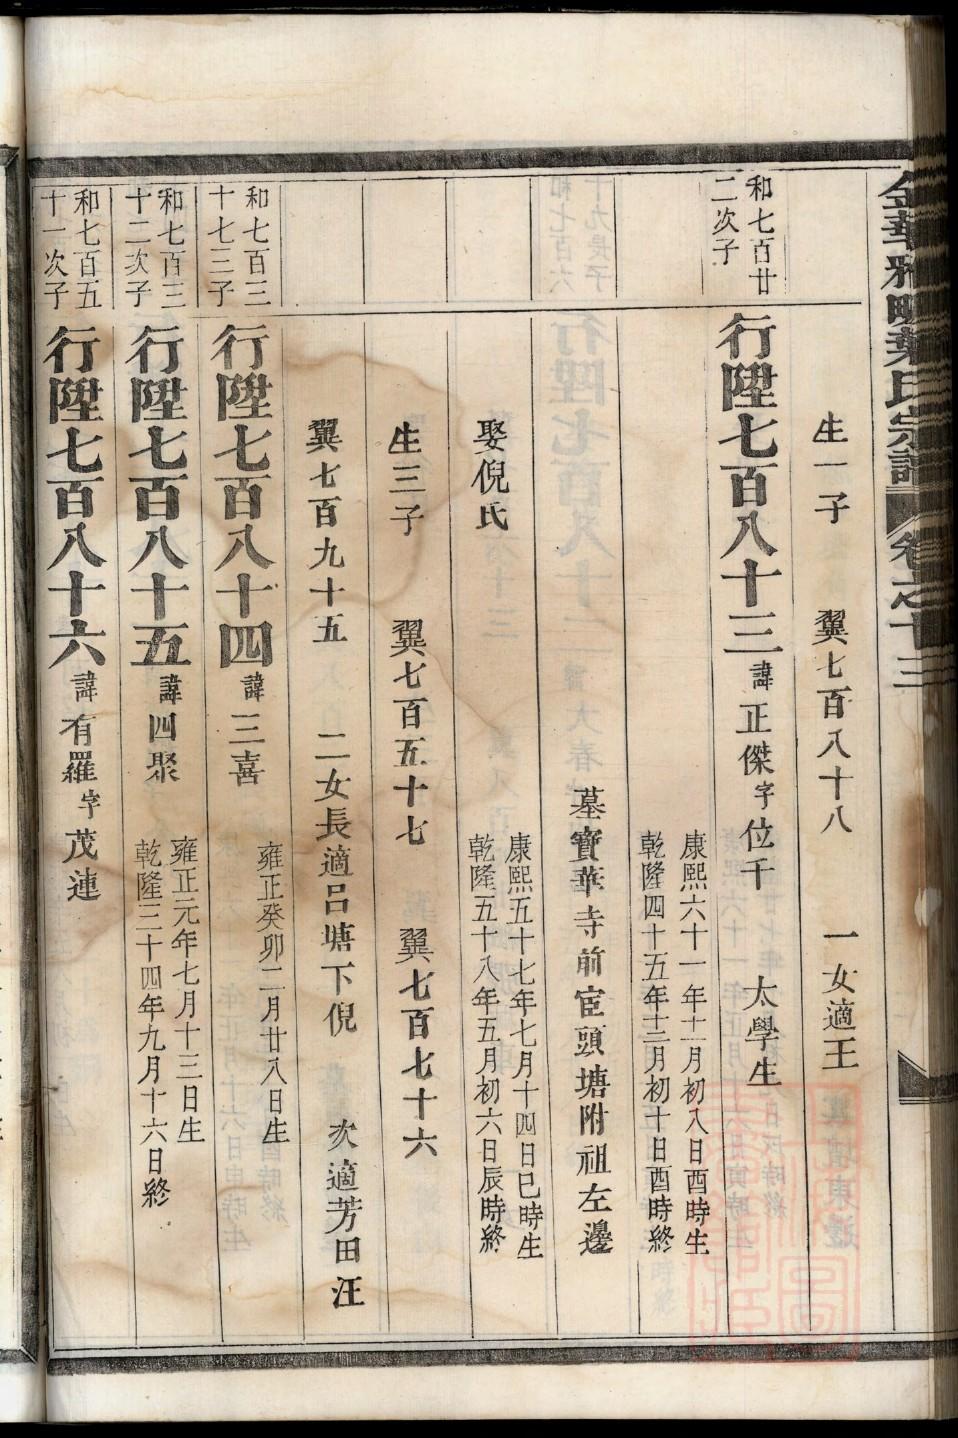 金華雅畈葉氏宗譜 卷之十三
生一子 翼七百八十八 一女適王
和七百廿
二次子
行陞七百八十三 諱正傑字位千 太學生
康熙六十一年十一月初八日酉時生
乾隆四十五年十二月初十日酉時終
墓寶華寺前宦頭塘附祖左邊
娶倪氏
康熙五十七年七月十四日巳時生
乾隆五十八年五月初六日辰時終
生三子 翼七百五十七 翼七百七十六
翼七百九十五 二女長適呂塘下倪 次適芳田汪
和七百三
十七三子
行陞七百八十四 諱三喜
雍正癸卯二月廿八日生
和七百三
十二次子
行陞七百八十五 諱四聚
雍正元年七月十三日生
乾隆三十四年九月十六日終
和七百五
十一次子
行陞七百八十六 諱有羅字茂連